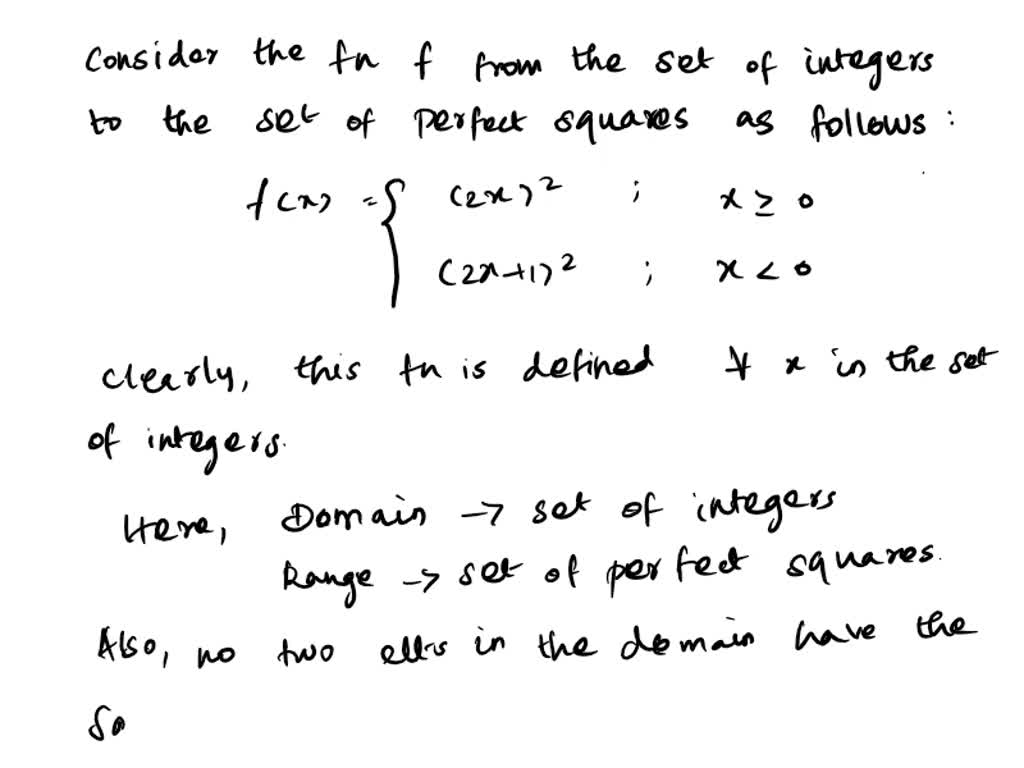 Consider the fn f from the set of integers
to the set of perfect squares as follows :
f(x) = { (2x)² ; x ≥ 0
(2x+1)² ; x < 0
Clearly, this fn is defined ∀ x in the set
of integers.
Here, Domain → set of integers
Range → set of perfect squares.
Also, no two elts in the domain have the
Sa